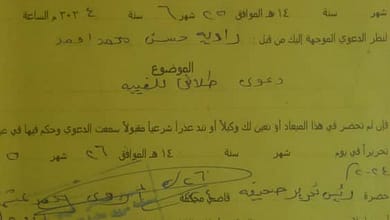 شهر سنة ١٤ هـ الموافق ٢٥ شهر ٦ سنة ٢٠٢٤ م الساعة
لنظر الدعوى الموجهة إليك من قبل : راديه حسن محمد احمد
الموضوع
دعوى طلاق للغيبه
فإن لم تحضر في هذا الميعاد أو تعين لك وكيلاً أو تبد عذراً شرعياً مقبولاً سمعت الدعوى وحكم فيها في
تحريراً في يوم شهر سنة ١٤ هـ الموافق ٢٦ شهر ٥
٢٠٢٤
حضرة رئيس تحرير صحيفه
قاضي محكمة